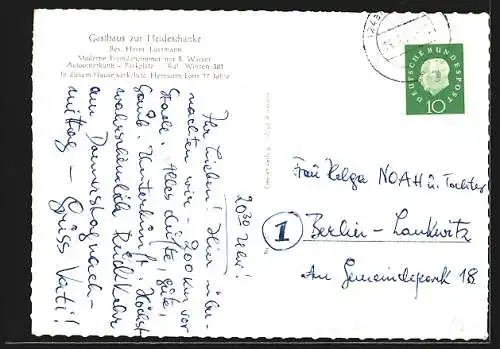 Gasthaus zur Heideschänke
Bes. Horst Lussmann
Moderne Fremdenzimmer mit fl. Wasser
Autounterkunft - Parkplatz Ruf Winsen 383
In diesem Hause verkehrte Hermann Löns 17 Jahre
20³⁰ Uhr!
Ihr Lieben! Hier über-
nachten wir - 200 km vor
Stade. Alles dufte, gute,
saub. Unterkunft. Höchst
wahrscheinlich Rückkehr
am Donnerstag nach-
mittag - Gruss Vati!
DEUTSCHE BUNDESPOST
10
Frau Helga NOAH u. Tochter
1
Berlin - Lankwitz
Am Gemeindepark 18